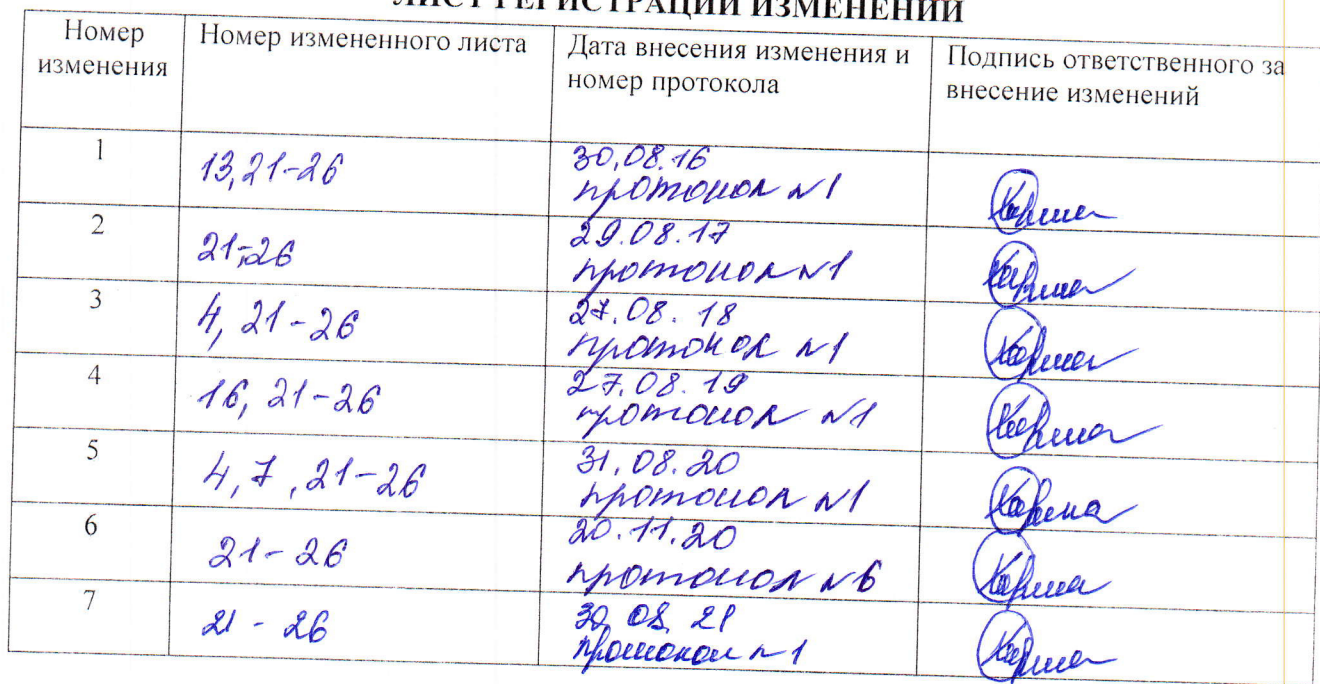 ЛИСТ РЕГИСТРАЦИИ ИЗМЕНЕНИЙ
Номер изменения Номер измененного листа Дата внесения изменения и номер протокола Подпись ответственного за внесение изменений
1 13,21-26 30.08.16
протокол №1
2 21-26 29.08.17
протокол №1
3 4, 21-26 27.08.18
протокол №1
4 16, 21-26 27.08.19
протокол №1
5 4,7,21-26 31.08.20
протокол №1
6 21-26 20.11.20
протокол №6
7 21-26 30.08.21
протокол №1